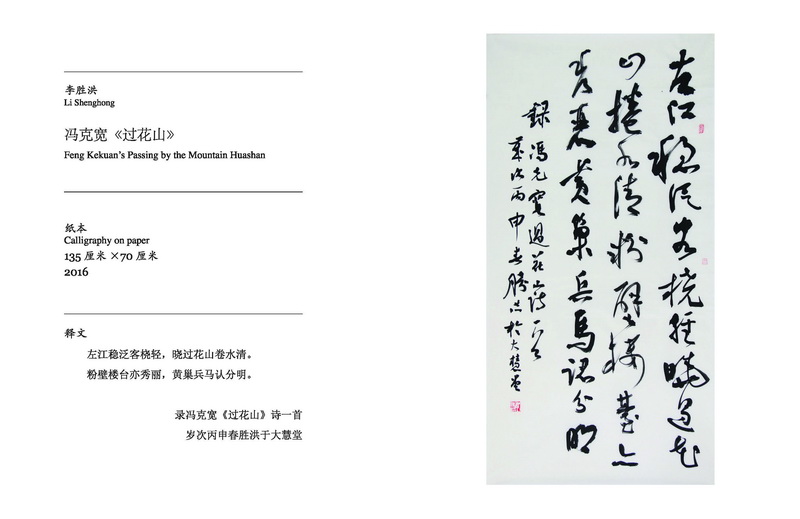 李胜洪
Li Shenghong
冯克宽《过花山》
Feng Kekuan's Passing by the Mountain Huashan
纸本
Calligraphy on paper
135 厘米 ×70 厘米
2016
释文
左江稳泛客桡轻，晓过花山卷水清。
粉壁楼台亦秀丽，黄巢兵马认分明。
录冯克宽《过花山》诗一首
岁次丙申春胜洪于大慧堂
左江穩泛客橈輕曉過花
山捲水清粉壁樓臺亦
秀麗黃巢兵馬認分明
録馮克寬過花山詩一首
歲次丙申春勝洪於大慧堂